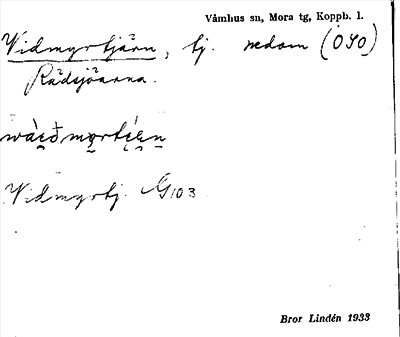 Våmhus sn, Mora tg, Koppb. l.
Vidmyrtjärn, tj. nedom (OSO)
Rädsjöarna.
Vidmyrtj. G103
Bror Lindén 1933